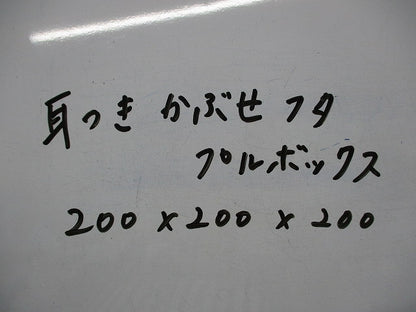 耳つき かぶせ フタ
プルボックス
200 x 200 x 200